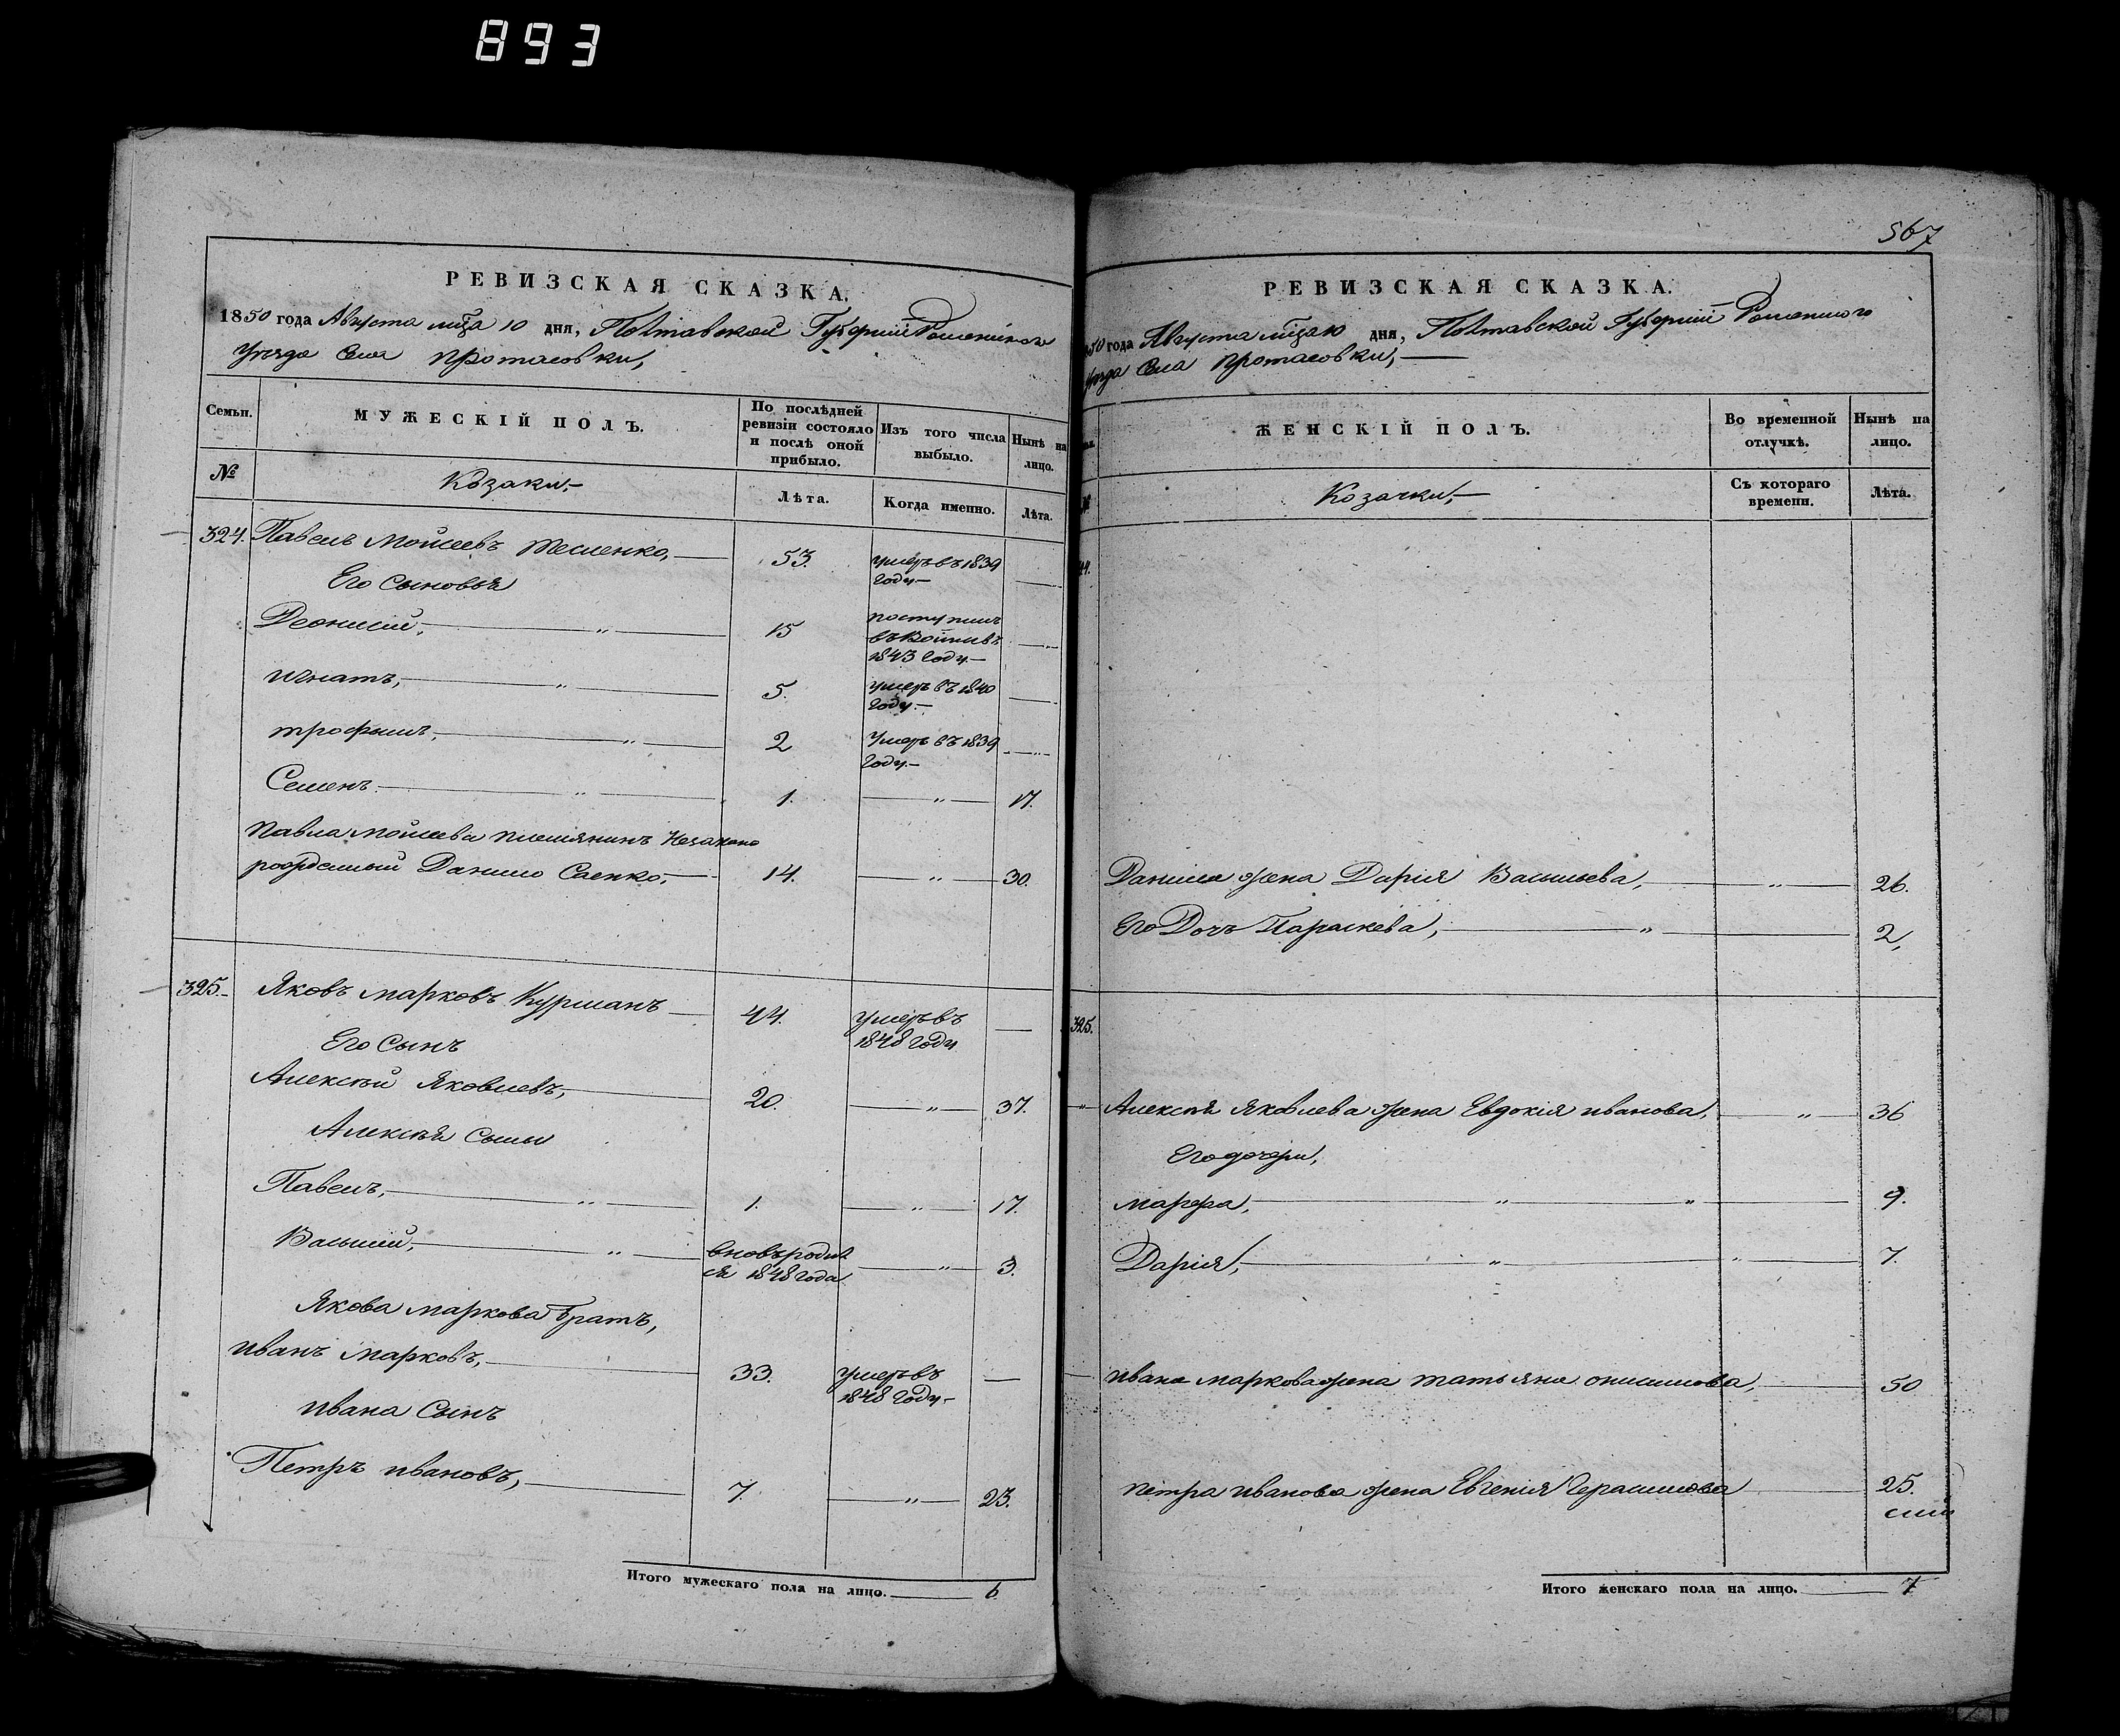 893
РЕВИЗСКАЯ СКАЗКА.
1850 года Августа мца 10 дня, Полтавской Губернии Роменского
Уезда Села Протасовки,
Семьи.
МУЖЕСКІЙ ПОЛЪ.
По послѣдней ревизіи состояло и послѣ оной прибыло.
Изъ того числа выбыло.
Нынѣ на лицо.
№
Козаки,
Лѣта.
Когда именно.
Лѣта.
324. Павелъ Мойсеевъ Тесленко, 53. умеръ въ 1839 году
Его сыновья
Деонисій, " 15 поступилъ въ 1843 году
Игнатъ, " 5. умеръ въ 1840 году
Трофимъ, " 2 умеръ въ 1839 году
Семенъ " 1. " 17.
Павла Мойсеева племянникъ Незаконо
рожденный Данило Саенко, 14. " 30.
325. Яковъ Марковъ Курманъ 44. умеръ въ 1848 году
Его сынъ
Алексѣй Яковлевъ, 20. " 37.
Алексѣя сыны
Павелъ, " 1. " 17.
Василий, " вновь родил ся 1848 года " 3.
Якова Маркова братъ,
Иванъ Марковъ, 33. умеръ въ 1848 году
Ивана сынъ
Петръ Ивановъ, 7. " 23.
Итого мужескаго пола на лицо. 6.
567
РЕВИЗСКАЯ СКАЗКА.
50 года Августа мца 10 дня, Полтавской Губернии Роменского
Села Протасовки,
ЖЕНСКІЙ ПОЛЪ.
Во временной отлучкѣ.
Нынѣ на лицо.
№
Козачки,
Съ котораго времени.
Лѣта.
Данила жена Дарія Васильева, " 26.
Его Дочь Параскева, " 2,
325.
" Алексѣя Яковлева жена Евдокія Иванова, " 36
Его дочери,
Марфа, " " 9.
Дарія, " " 7.
Ивана Маркова жена Татьяна Онисимова, 50
Петра Иванова жена Евгенія Герасимова 25.
Итого женскаго пола на лицо. 7